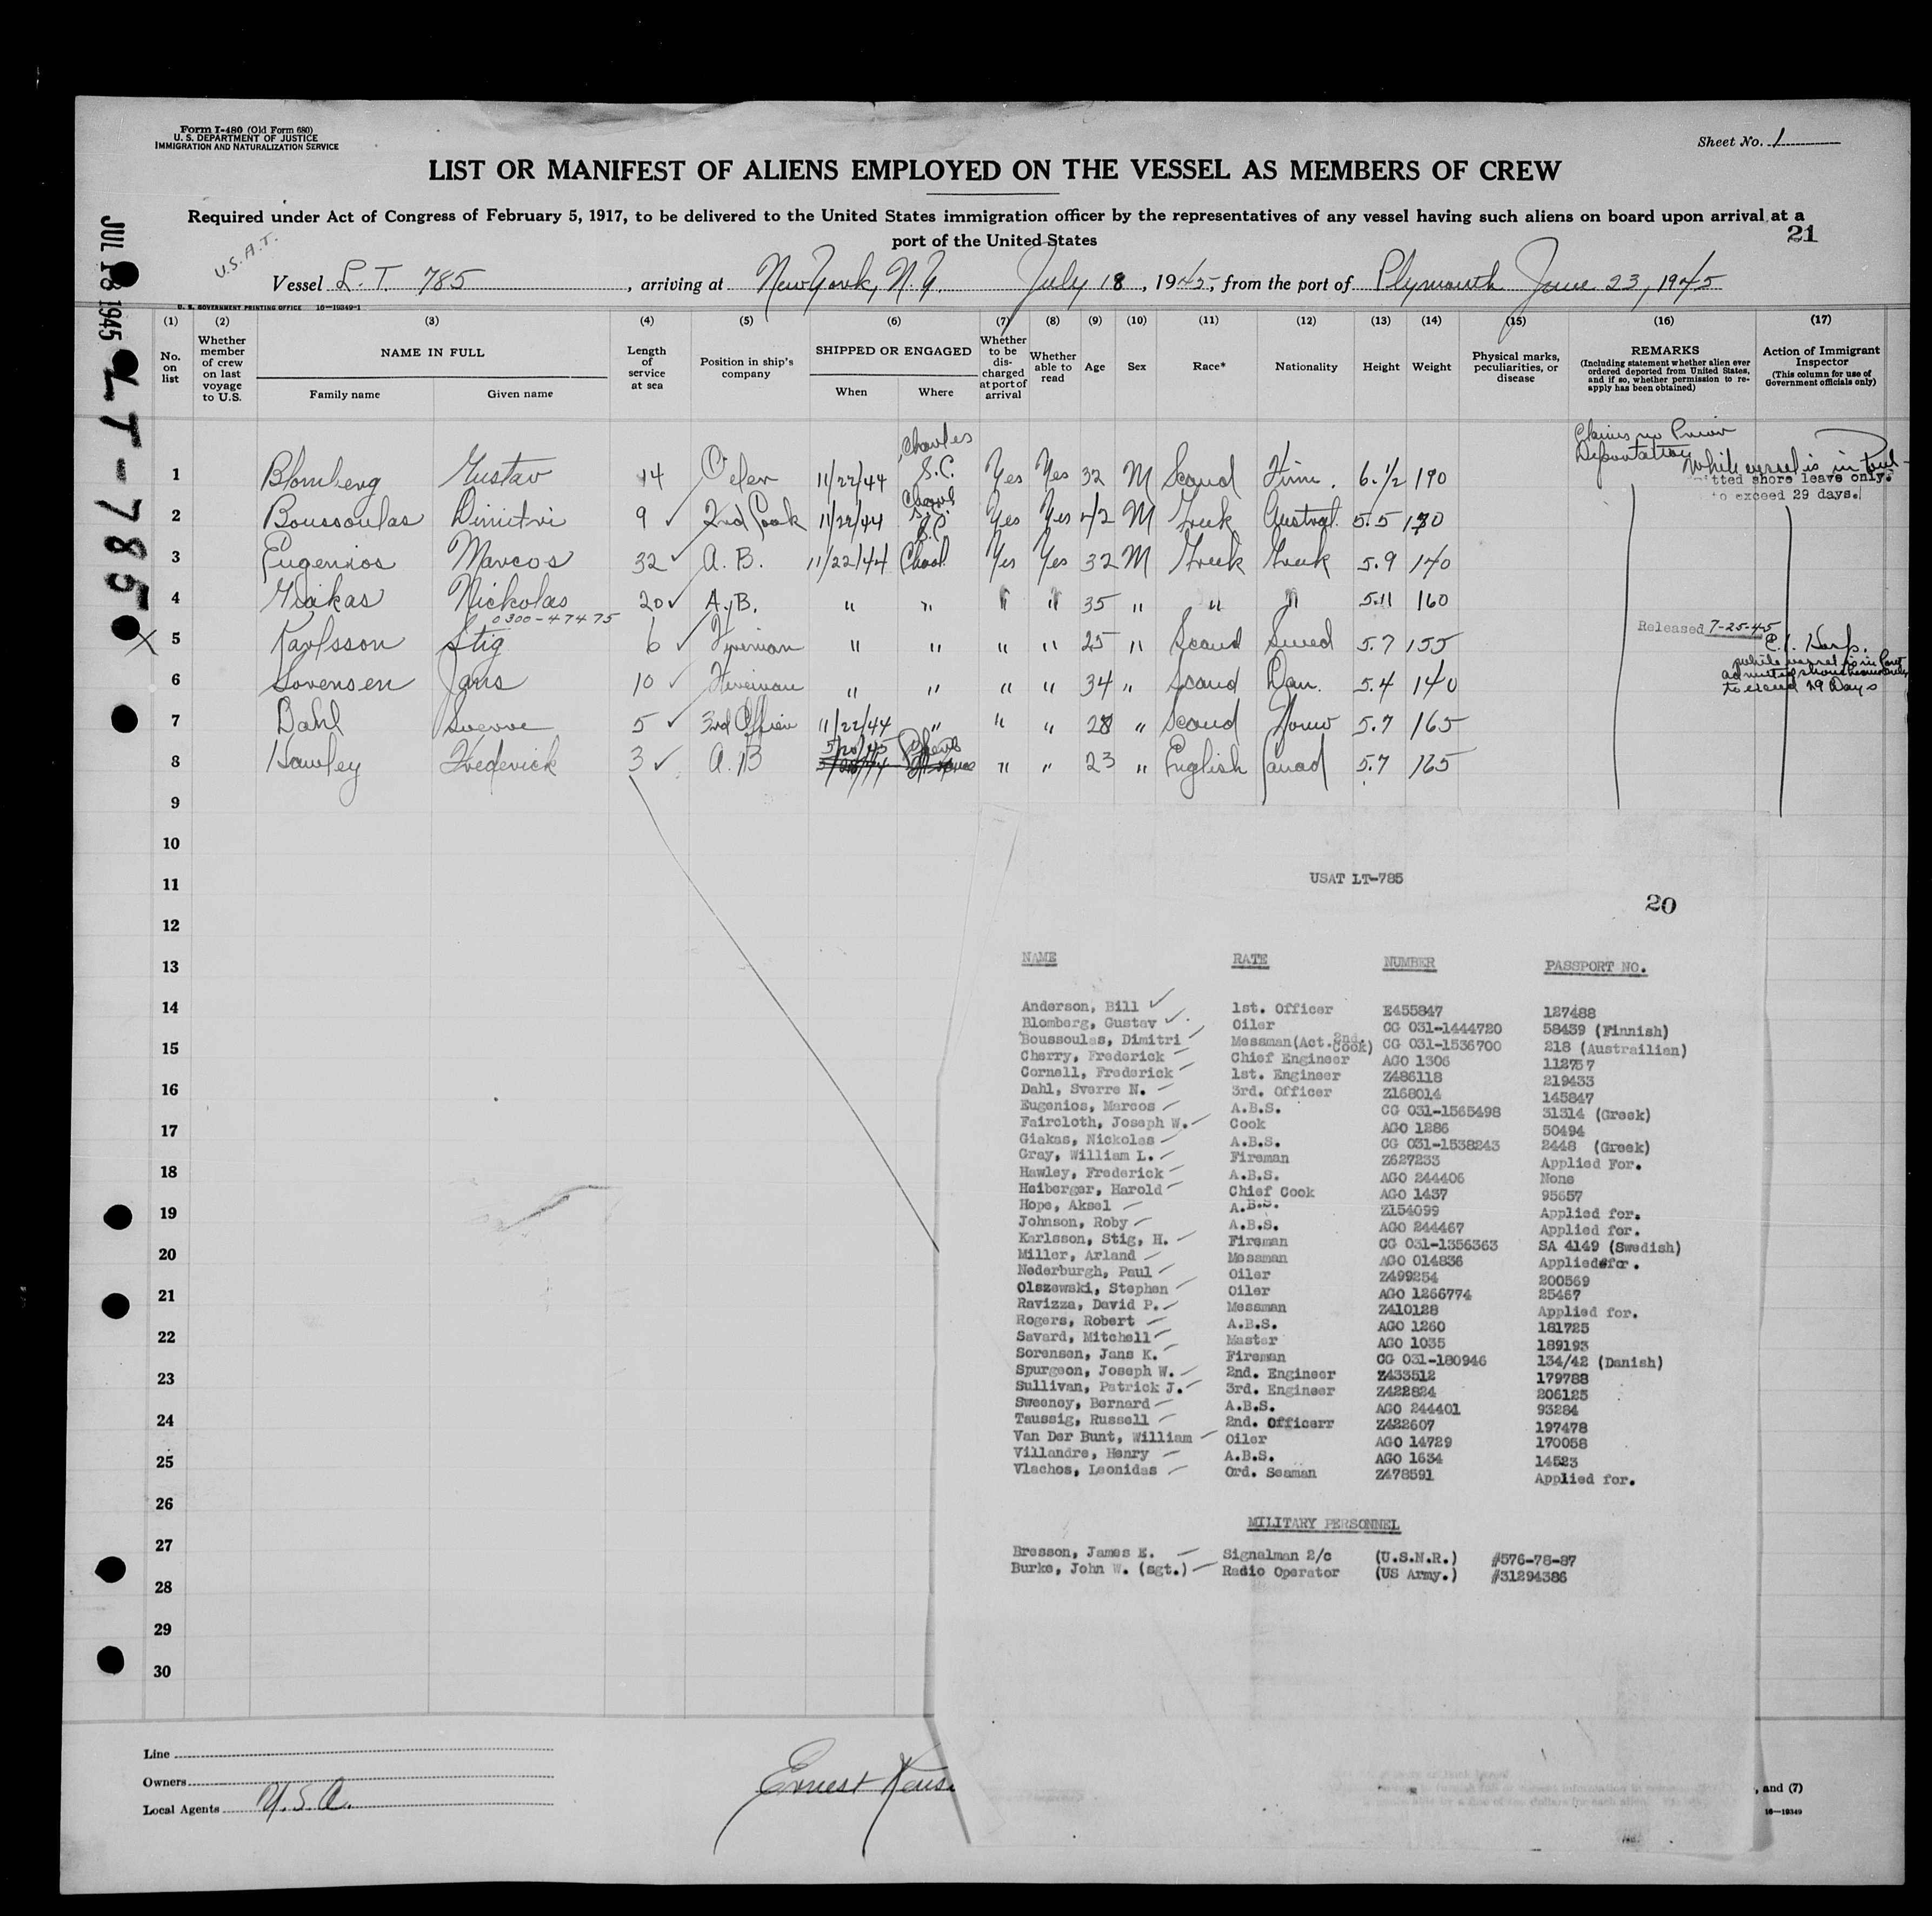 Form I-480 (Old Form 680)
U. S. DEPARTMENT OF JUSTICE
IMMIGRATION AND NATURALIZATION SERVICE
Sheet No. 1
LIST OR MANIFEST OF ALIENS EMPLOYED ON THE VESSEL AS MEMBERS OF CREW
Required under Act of Congress of February 5, 1917, to be delivered to the United States immigration officer by the representatives of any vessel having such aliens on board upon arrival at a
port of the United States
21
JUL 18 1945
LT-785
U.S.A.T.
Vessel L.T. 785, arriving at New York, N.Y. July 18, 1945, from the port of Plymouth June 23, 1945
U. S. GOVERNMENT PRINTING OFFICE 16-19349-1
(1) (2) (3) (4) (5) (6) (7) (8) (9) (10) (11) (12) (13) (14) (15) (16) (17)
No. on list
Whether member of crew on last voyage to U.S.
NAME IN FULL
Family name
Given name
Length of service at sea
Position in ship's company
SHIPPED OR ENGAGED
When
Where
Whether to be discharged at port of arrival
Whether able to read
Age
Sex
Race*
Nationality
Height
Weight
Physical marks, peculiarities, or disease
REMARKS
(Including statement whether alien ever ordered deported from United States, and if so, whether permission to reapply has been obtained)
Action of Immigrant Inspector
(This column for use of Government officials only)
Claims no Prior
Deportation
While vessel is in Port
itted shore leave only.
to exceed 29 days.
1 Blomberg Gustav 14 Oiler 11/22/44 Charles S.C. Yes Yes 32 M Scand Finn. 6.1/2 190
2 Boussoulas Dimitri 9 2nd Cook 11/22/44 Yes Yes 42 M Greek Austral. 5.5
3 Eugenios Marcos 32 A.B. 11/22/44 Yes Yes 32 M Greek Greek 5.9 140
4 Giakas Nickolas 20 A.B. " " " " 35 " " " 5.11 160
0300-47475
X 5 Karlsson Stig 6 Fireman " " " " 25 " Scand Swed 5.7 155
Released 7-25-45
6 Sorensen Jans 10 Fireman " " " " 34 " Scand Dan. 5.4 140
while vessel is in Port
admitted shore leave only
to exceed 29 Days
7 Dahl Sverre 5 3rd Officer 11/22/44 " " " 28 " Scand Norw 5.7 165
8 Hawley Frederick 3 A.B 5/20/45 " " 23 " English Canad 5.7 165
9
10
11
12
13
14
15
16
17
18
19
20
21
22
23
24
25
26
27
28
29
30
USAT LT-785
20
NAME RATE NUMBER PASSPORT NO.
Anderson, Bill 1st. Officer E455847 127488
Blomberg, Gustav Oiler CG 031-1444720 58439 (Finnish)
Boussoulas, Dimitri Messman(Act. 2nd. Cook) CG 031-1536700 218 (Austrailian)
Cherry, Frederick Chief Engineer AGO 1306 112757
Cornell, Frederick 1st. Engineer Z486118 219433
Dahl, Sverre N. 3rd. Officer Z168014 145847
Eugenios, Marcos A.B.S. CG 031-1565498 31314 (Greek)
Faircloth, Joseph W. Cook AGO 1286 50494
Giakas, Nickolas A.B.S. CG 031-1538243 2448 (Greek)
Gray, William L. Fireman Z627233 Applied For.
Hawley, Frederick A.B.S. AGO 244406 None
Heiberger, Harold Chief Cook AGO 1437 95657
Hope, Aksel A.B.S. Z154099 Applied for.
Johnson, Roby A.B.S. AGO 244467 Applied for.
Karlsson, Stig, H. Fireman CG 031-1356363 SA 4149 (Swedish)
Miller, Arland Messman AGO 014836 Applied for.
Nederburgh, Paul Oiler Z499254 200569
Olszewski, Stephen Oiler AGO 1266774 25467
Ravizza, David P. Messman Z410128 Applied for.
Rogers, Robert A.B.S. AGO 1260 181725
Savard, Mitchell Master AGO 1035 189193
Sorensen, Jans K. Fireman CG 031-180946 134/42 (Danish)
Spurgeon, Joseph W. 2nd. Engineer Z433512 179788
Sullivan, Patrick J. 3rd. Engineer Z422824 206125
Sweeney, Bernard A.B.S. AGO 244401 93284
Taussig, Russell 2nd. Officerr Z422607 197478
Van Der Bunt, William Oiler AGO 14729 170058
Villandre, Henry A.B.S. AGO 1634 14523
Vlachos, Leonidas Ord. Seaman Z478591 Applied for.
MILITARY PERSONNEL
Bresson, James E. Signalman 2/c (U.S.N.R.) #576-78-87
Burke, John W. (sgt.) Radio Operator (US Army.) #31294386
Line
Owners
Local Agents U.S.A.
Ernest
, and (7)
16-19349